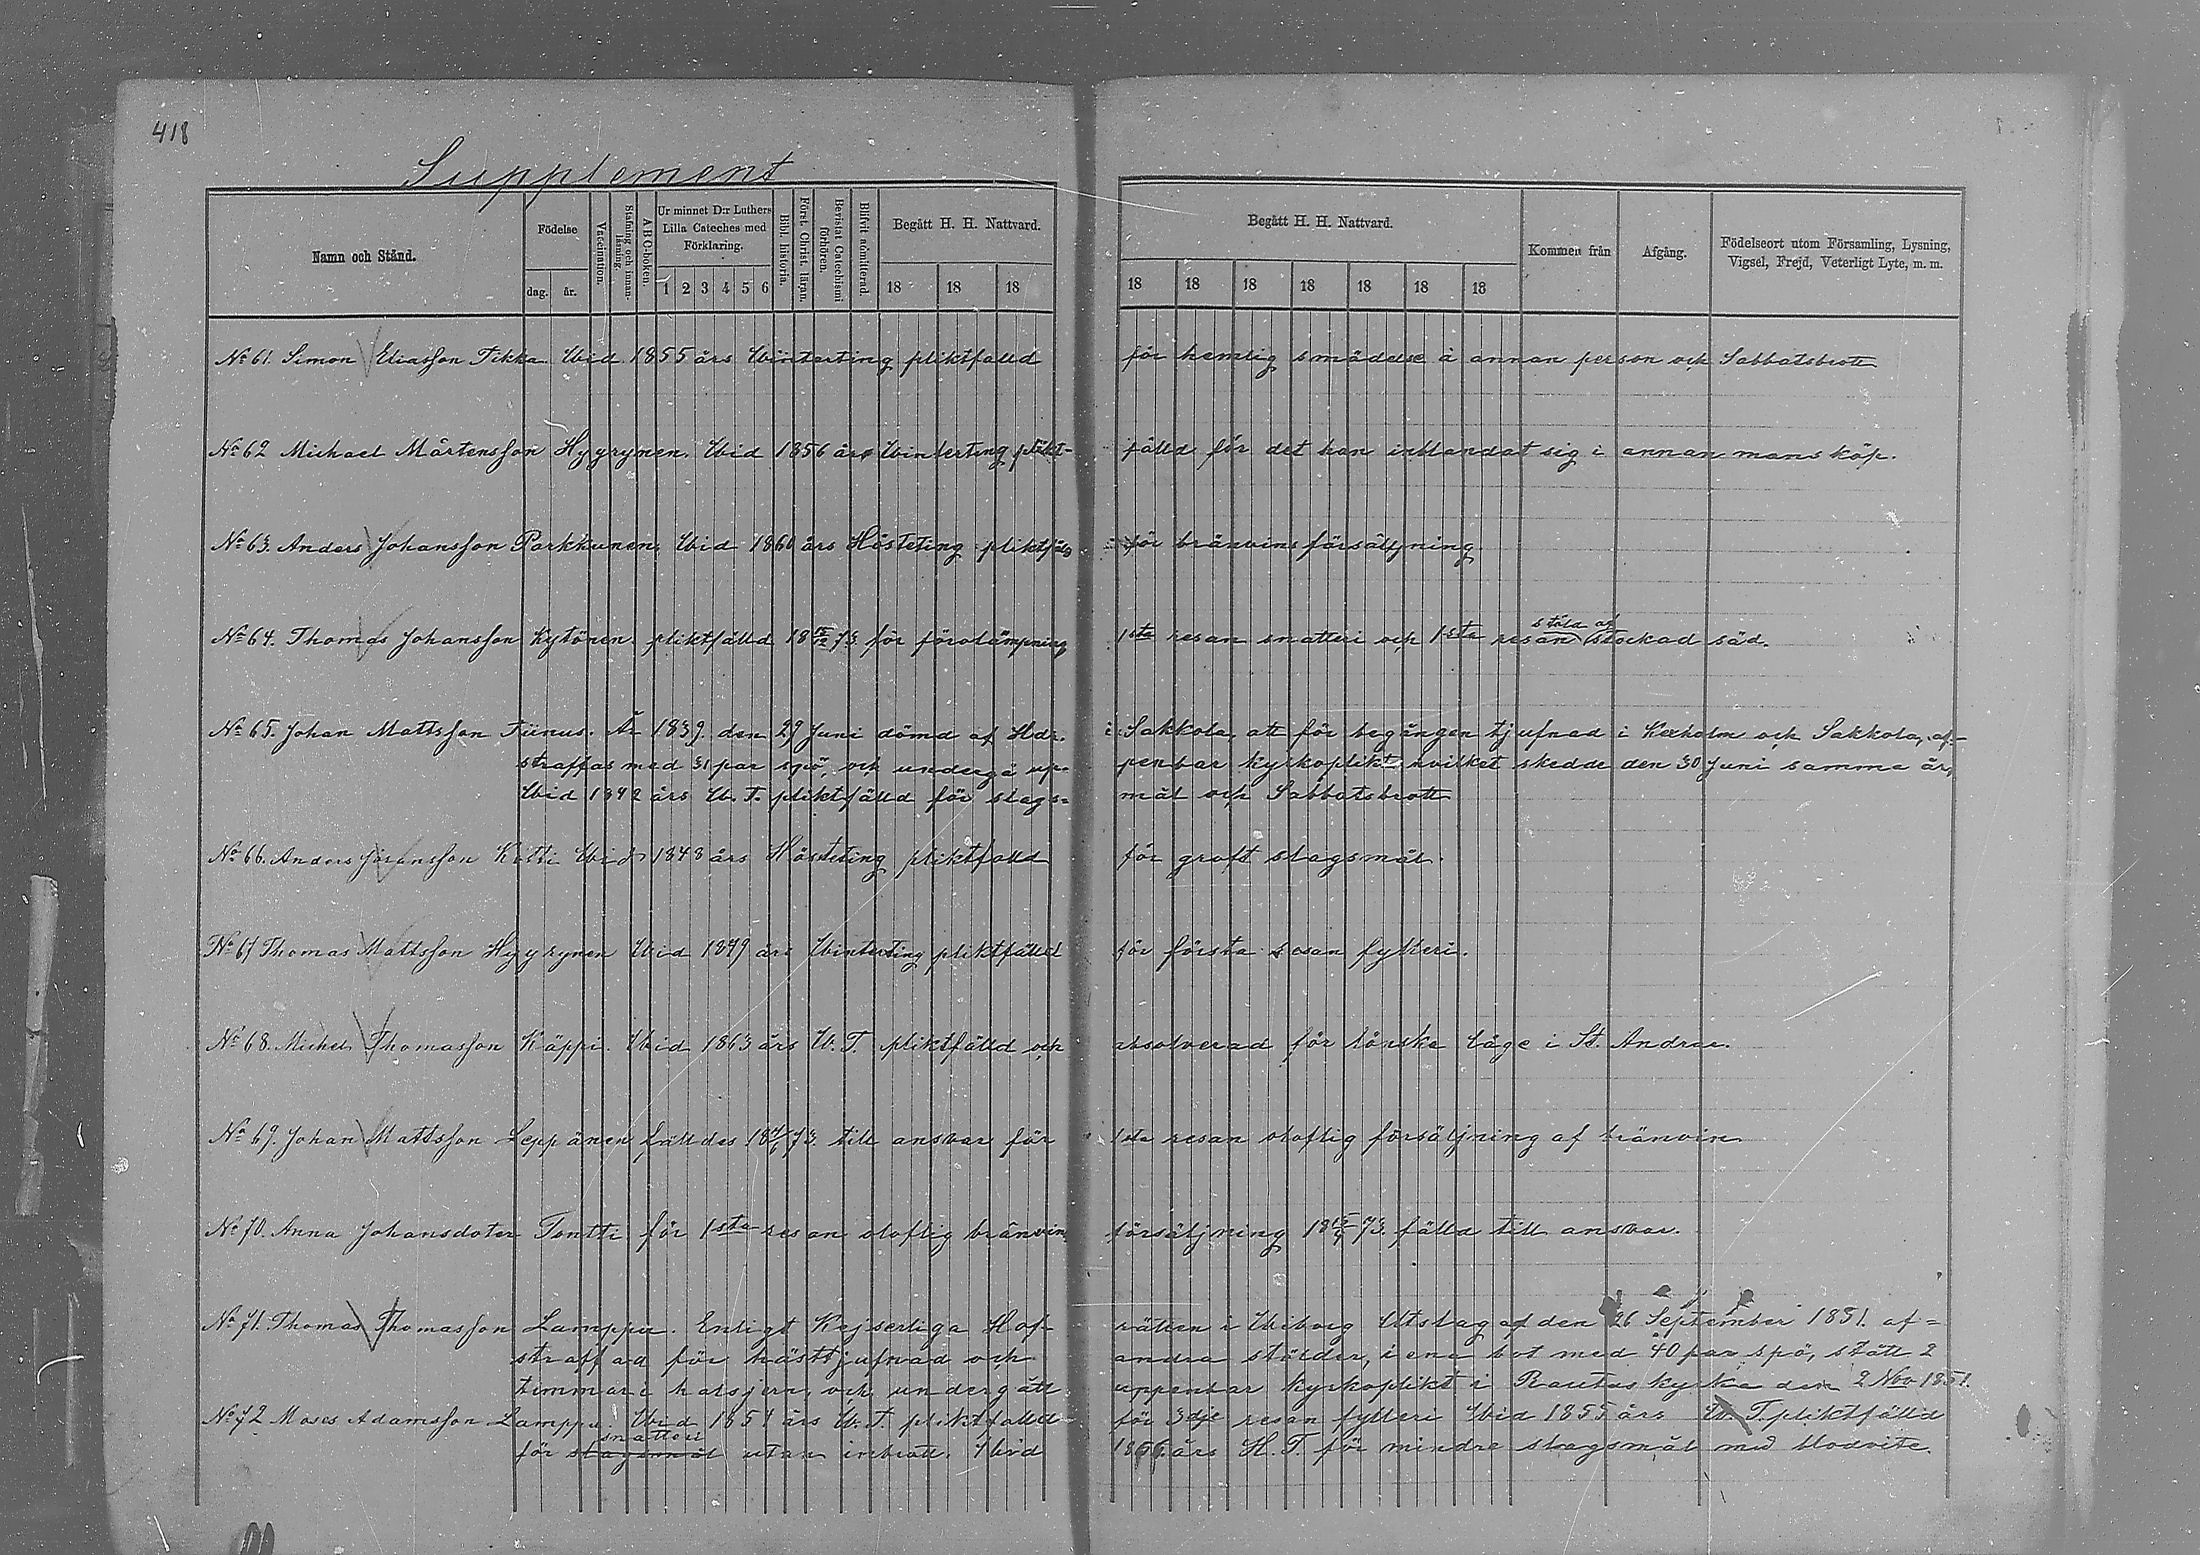 418
Supplement
Namn och Stånd.
Födelse
dag. år.
Vaccination.
Stafning och innanläsning.
A B C-boken.
Ur minnet D:r Luthers Lilla Cateches med Förklaring.
1 2 3 4 5 6
Bibl. historia.
Först. Christ. läran.
Bevistat Catechismi förhören.
Blifvit admitterad.
Begått H. H. Nattvard.
18 18 18
Begått H. H. Nattvard.
18 18 18 18 18 18 18
Kommen från
Afgång.
Födelseort utom Församling, Lysning, Vigsel, Frejd, Veterligt Lyte, m. m.
No 61. Simon Eliasson Tikka Wid 1855 års Winterting pliktfälld för hemlig smädelse å annan person och Sabbatsbrott
No 62 Michael Mårtensson Hyyrynen. Wid 1856 års Winterting plikt- fälld för det han inblandat sig i annan mans köp.
No 63. Anders Johansson Parkkunen Wid 1860 års Hösteting pliktfäld för bränvins försälljning
No 64. Thomas Johansson Kytönen pliktfälld 18 15/12 73 för förolämpning 1sta resan snatteri och 1sta resan stöld af stockad säd.
No 65. Johan Mattsson Tiinus. År 1839. den 29 Juni dömd af Hdr. i Sakkola, att för begången tjufnad i Kexholm och Sakkola, af-
straffas med 31 par spö, och undergå up- penbar kyrkoplikt hvilket skedde den 30 Juni samma år,
Wid 1842 års W. T. pliktfälld för slags- mål och Sabbatsbrott
No 66. Anders Johansson Kotti Wid 1848 års Hösteting pliktfälld för groft slagsmål.
No 67 Thomas Mattsson Hyyrynen Wid 1849 års Winterting pliktfälld för första resan fylleri.
No 68. Michel Thomasson Käppi. Wid 1863 års W. T. pliktfälld och absolverad för lönska läge i St. Andrae.
No 69. Johan Mattsson Leppänen fälldes 73 till ansvar för 1sta resan oloflig försäljning af bränvin
No 70. Anna Johansdoter Tontti för 1sta resan oloflig bränvins försäljning 18 15/4 73. fälld till ansvar.
No 71. Thomas Thomasson Lamppu. Enligt Kejserliga Hof- rätten i Wiborg Utslag af den 26 September 1851. af-
straffad för hästtjufnad och andra stölder, i ene bot med 40 par spö, stått 2
timmar i halsjern, och undergått uppenbar kyrkoplikt i Rautus kyrka den 2 Nov 1851.
No 72 Moses Adamsson Lamppu. Wid 1854 års W. T. pliktfälld för 3dje resan fylleri Wid 1855 års W. T. pliktfälld
för slagsmål snatteri utan inbrott. Wid 1856. års H. T. för mindre slagsmål med blodvite.